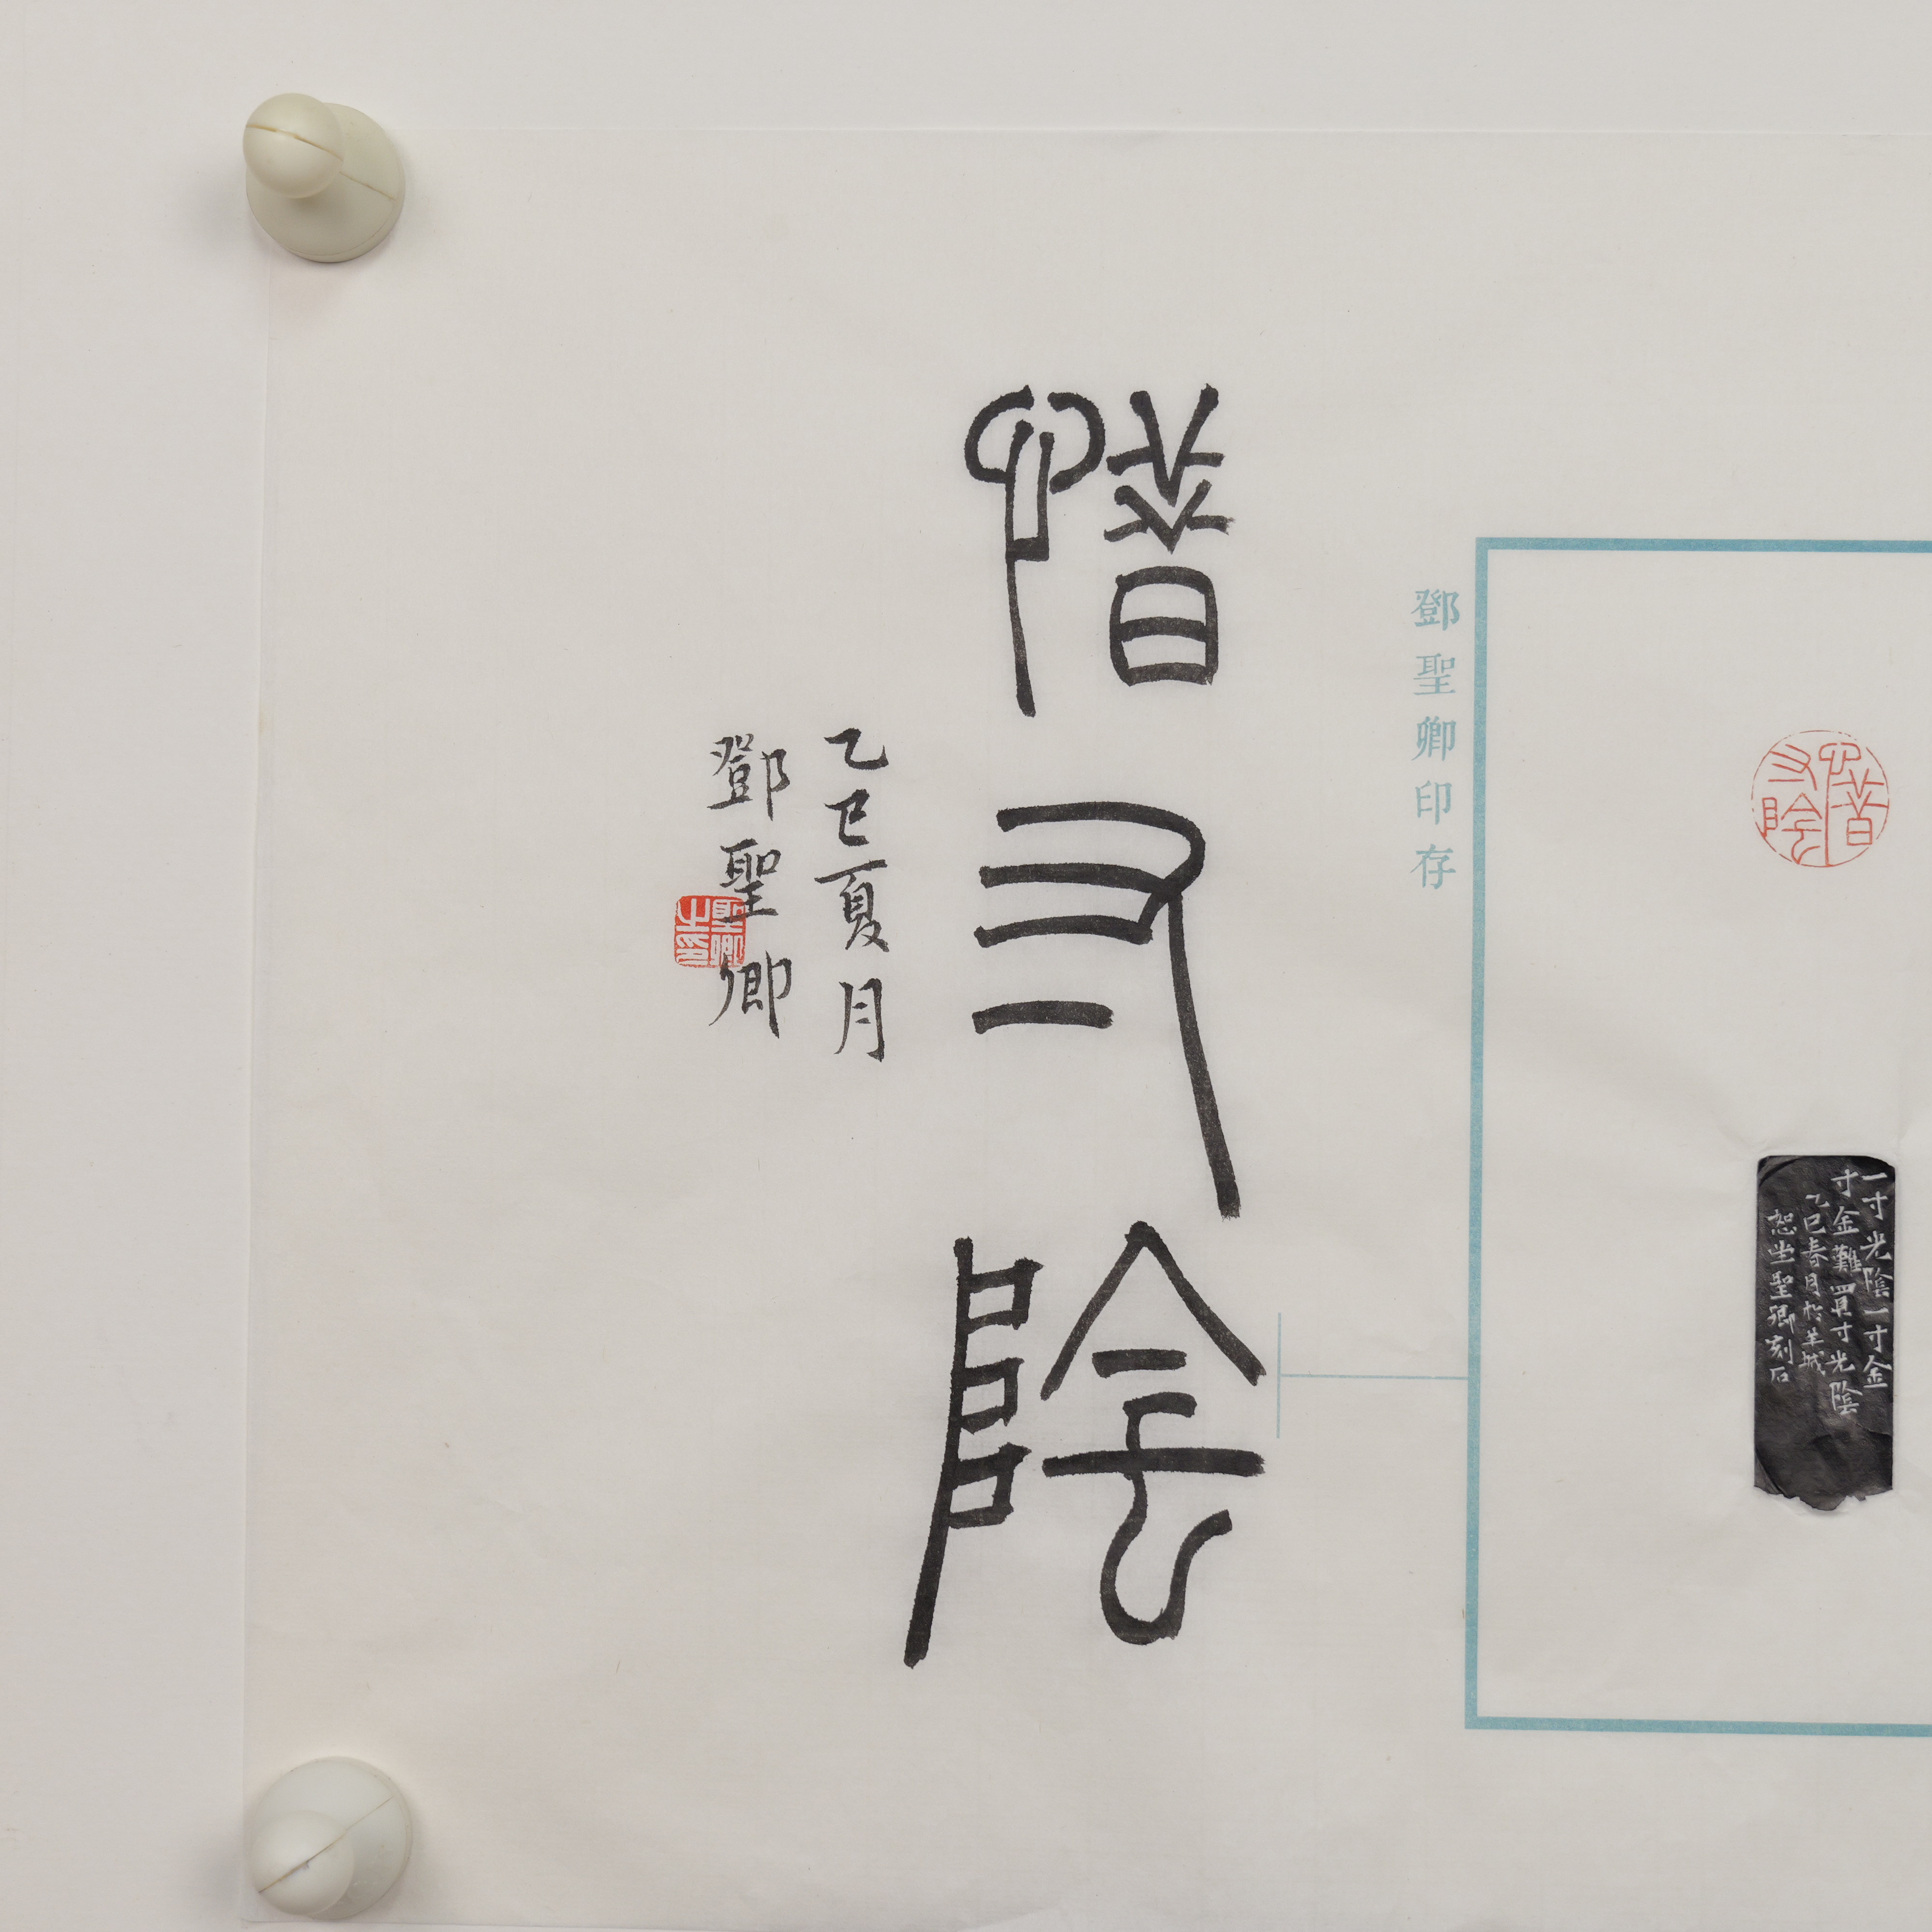 惜寸陰
一寸光陰一寸金
寸金難買寸光陰
乙巳春月於羊城
聖卿刻石
鄧聖卿印存
惜寸陰
乙巳夏月
鄧聖卿
聖卿之印